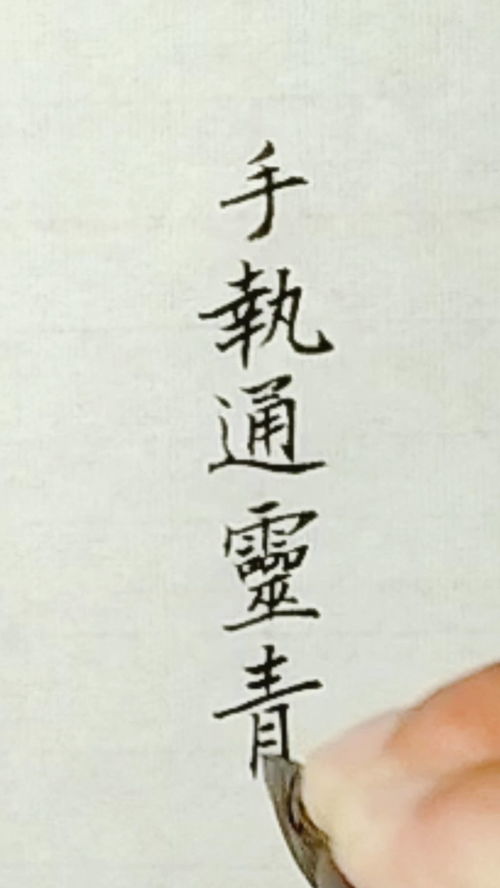 手執通靈青